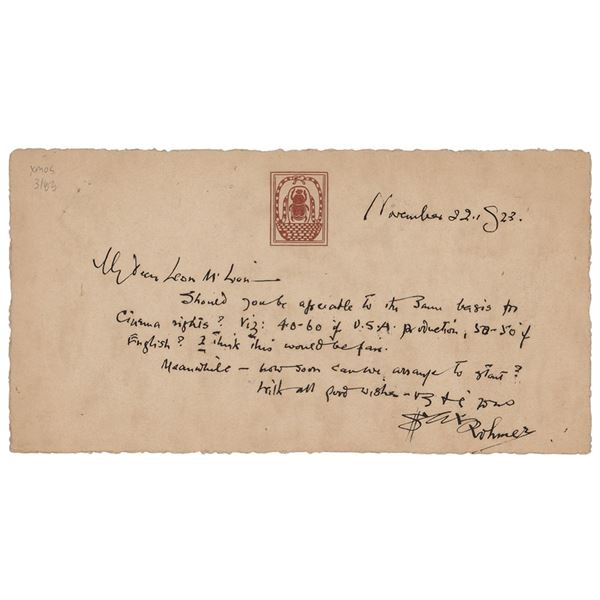 xmas
3/83
November 22. 1923.
My dear Leon M' Lion —
Should you be agreeable to the same basis for
Cinema rights? Viz: 40-60 if U.S.A. production, 50-50 if
English? I think this would be fair.
Meanwhile — how soon can we arrange to start?
With all good wishes —
Sax Rohmer